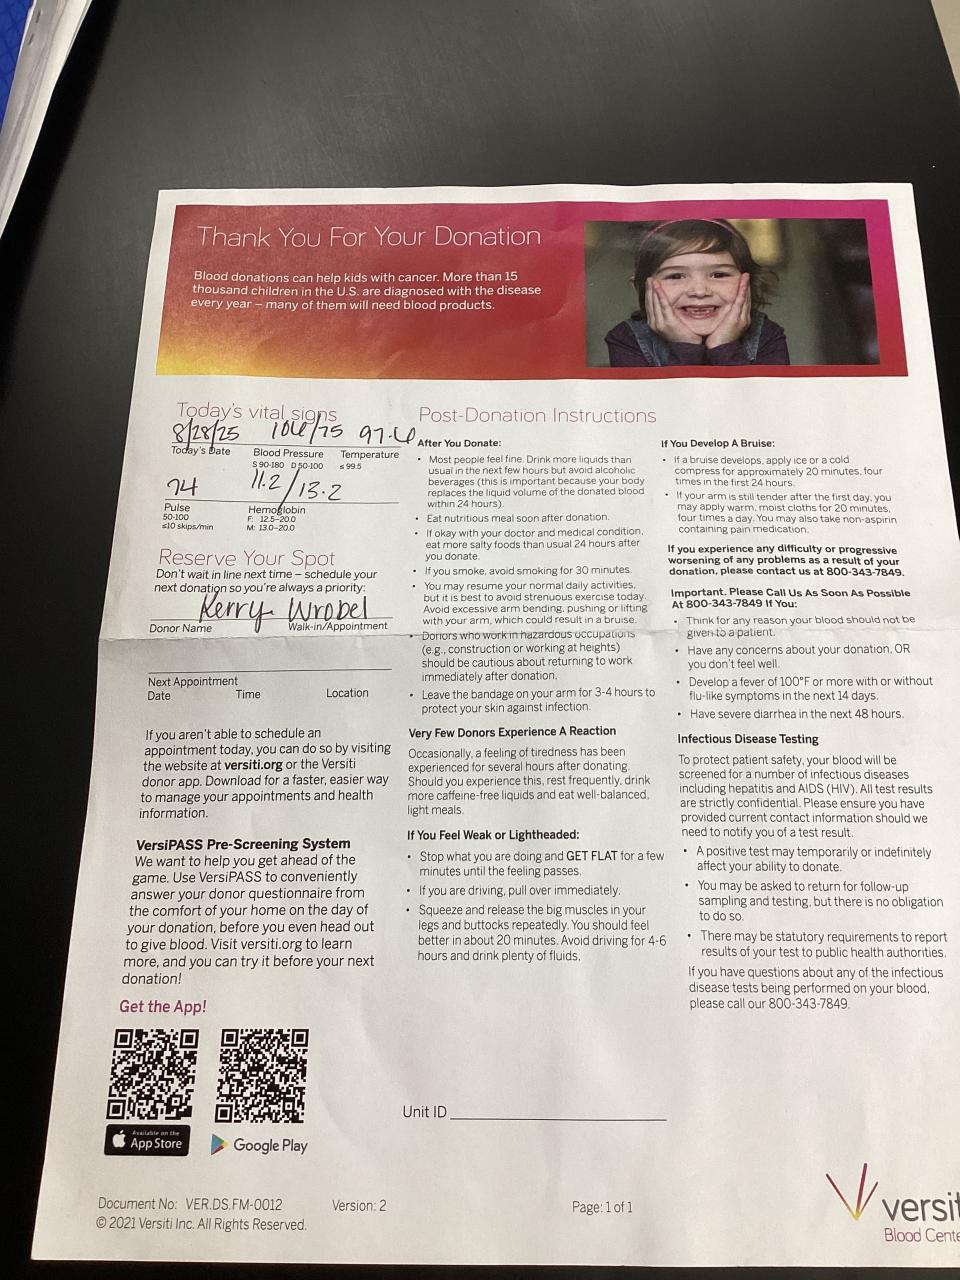 Thank You For Your Donation
Blood donations can help kids with cancer. More than 15
thousand children in the U.S. are diagnosed with the disease
every year – many of them will need blood products.
Today's vital signs
8/28/25 106/75 97.6
Today's Date Blood Pressure Temperature
S 90-180 D 50-100 ≤ 99.5
74 11.2/13.2
Pulse Hemoglobin
50-100 F: 12.5-20.0
≤10 skips/min M: 13.0-20.0
Reserve Your Spot
Don't wait in line next time – schedule your
next donation so you're always a priority:
Kerry Wrobel
Donor Name Walk-in/Appointment
Next Appointment
Date Time Location
If you aren't able to schedule an
appointment today, you can do so by visiting
the website at versiti.org or the Versiti
donor app. Download for a faster, easier way
to manage your appointments and health
information.
VersiPASS Pre-Screening System
We want to help you get ahead of the
game. Use VersiPASS to conveniently
answer your donor questionnaire from
the comfort of your home on the day of
your donation, before you even head out
to give blood. Visit versiti.org to learn
more, and you can try it before your next
donation!
Get the App!
Available on the
App Store
Google Play
Post-Donation Instructions
After You Donate:
• Most people feel fine. Drink more liquids than
usual in the next few hours but avoid alcoholic
beverages (this is important because your body
replaces the liquid volume of the donated blood
within 24 hours).
• Eat nutritious meal soon after donation.
• If okay with your doctor and medical condition,
eat more salty foods than usual 24 hours after
you donate.
• If you smoke, avoid smoking for 30 minutes.
• You may resume your normal daily activities,
but it is best to avoid strenuous exercise today.
Avoid excessive arm bending, pushing or lifting
with your arm, which could result in a bruise.
• Donors who work in hazardous occupations
(e.g., construction or working at heights)
should be cautious about returning to work
immediately after donation.
• Leave the bandage on your arm for 3-4 hours to
protect your skin against infection.
Very Few Donors Experience A Reaction
Occasionally, a feeling of tiredness has been
experienced for several hours after donating.
Should you experience this, rest frequently, drink
more caffeine-free liquids and eat well-balanced,
light meals.
If You Feel Weak or Lightheaded:
• Stop what you are doing and GET FLAT for a few
minutes until the feeling passes.
• If you are driving, pull over immediately.
• Squeeze and release the big muscles in your
legs and buttocks repeatedly. You should feel
better in about 20 minutes. Avoid driving for 4-6
hours and drink plenty of fluids.
If You Develop A Bruise:
• If a bruise develops, apply ice or a cold
compress for approximately 20 minutes, four
times in the first 24 hours.
• If your arm is still tender after the first day, you
may apply warm, moist cloths for 20 minutes,
four times a day. You may also take non-aspirin
containing pain medication.
If you experience any difficulty or progressive
worsening of any problems as a result of your
donation, please contact us at 800-343-7849.
Important. Please Call Us As Soon As Possible
At 800-343-7849 If You:
• Think for any reason your blood should not be
given to a patient.
• Have any concerns about your donation, OR
you don't feel well.
• Develop a fever of 100°F or more with or without
flu-like symptoms in the next 14 days.
• Have severe diarrhea in the next 48 hours.
Infectious Disease Testing
To protect patient safety, your blood will be
screened for a number of infectious diseases
including hepatitis and AIDS (HIV). All test results
are strictly confidential. Please ensure you have
provided current contact information should we
need to notify you of a test result.
• A positive test may temporarily or indefinitely
affect your ability to donate.
• You may be asked to return for follow-up
sampling and testing, but there is no obligation
to do so.
• There may be statutory requirements to report
results of your test to public health authorities.
If you have questions about any of the infectious
disease tests being performed on your blood,
please call our 800-343-7849.
Unit ID
Document No: VER.DS.FM-0012 Version: 2 Page: 1 of 1
© 2021 Versiti Inc. All Rights Reserved.
versiti
Blood Cente